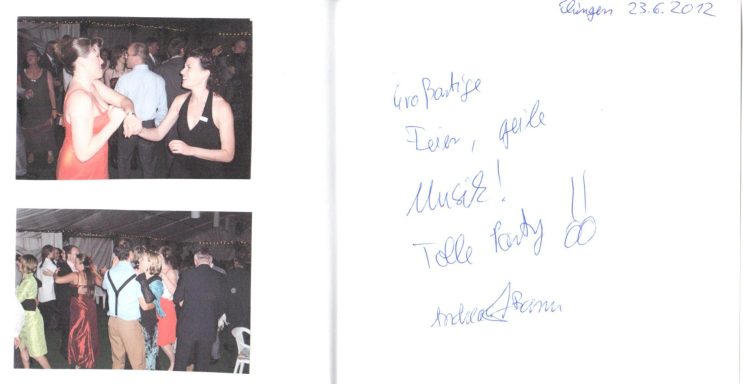 23.6.2012
Großartige
Feier, geile
Musik!
Tolle Party !!
Andrea